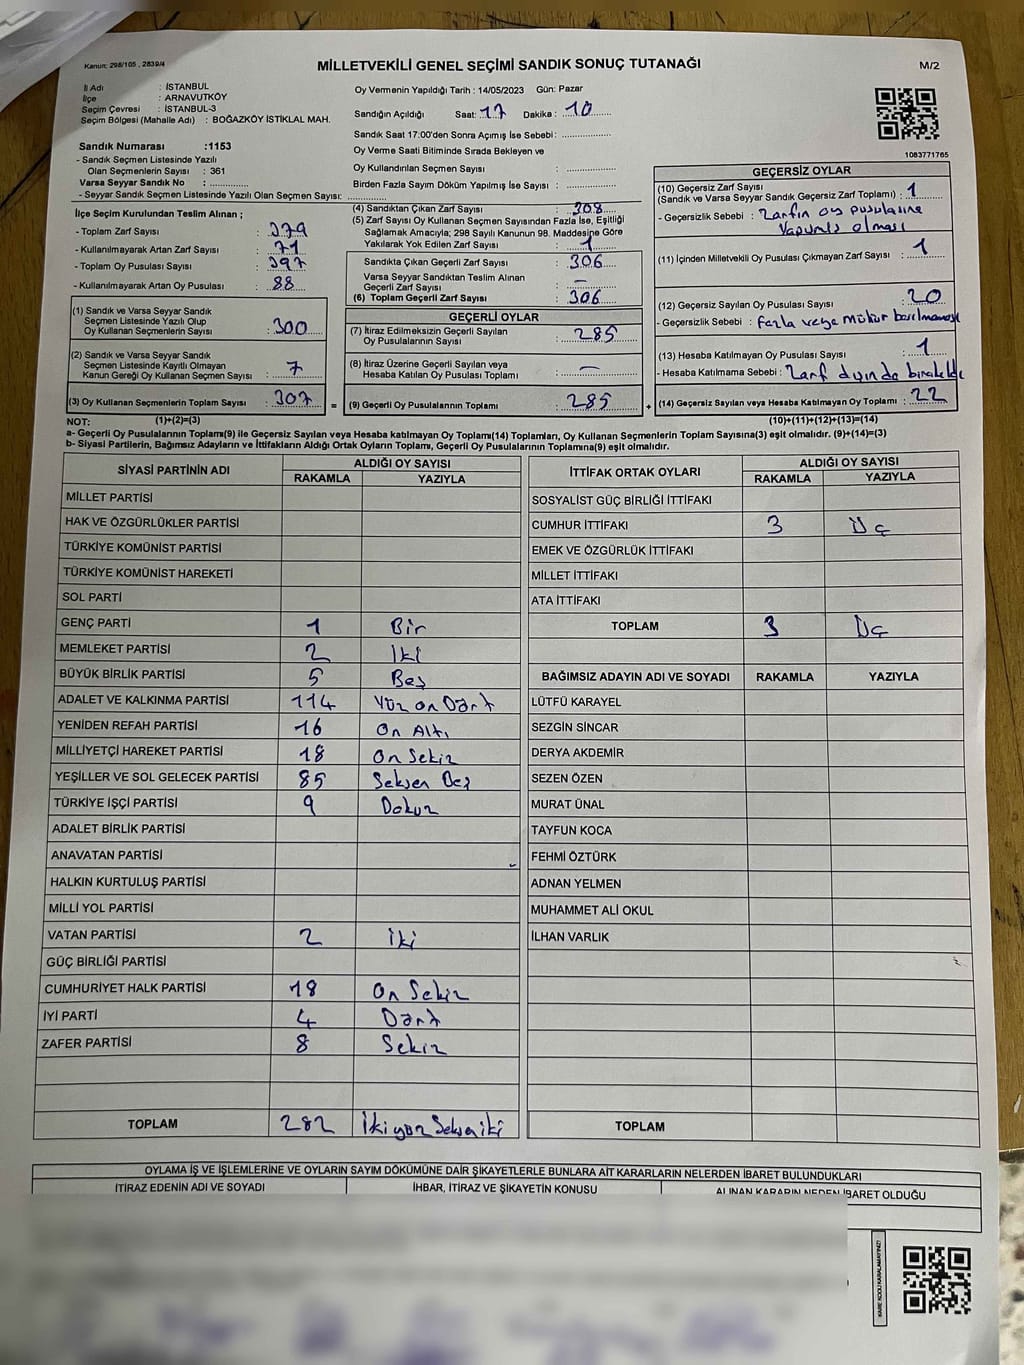 Kanun; 298/105 , 2839/4
MİLLETVEKİLİ GENEL SEÇİMİ SANDIK SONUÇ TUTANAĞI
M/2
İl Adı : İSTANBUL
İlçe : ARNAVUTKÖY
Seçim Çevresi : İSTANBUL-3
Seçim Bölgesi (Mahalle Adı) : BOĞAZKÖY İSTİKLAL MAH.
Sandık Numarası :1153
- Sandık Seçmen Listesinde Yazılı
Olan Seçmenlerin Sayısı : 361
Varsa Seyyar Sandık No :
- Seyyar Sandık Seçmen Listesinde Yazılı Olan Seçmen Sayısı:
Oy Vermenin Yapıldığı Tarih : 14/05/2023 Gün: Pazar
Sandığın Açıldığı Saat: 17 Dakika : 10
Sandık Saat 17:00'den Sonra Açımış İse Sebebi:
Oy Verme Saati Bitiminde Sırada Bekleyen ve
Oy Kullandırılan Seçmen Sayısı :
Birden Fazla Sayım Döküm Yapılmış İse Sayısı :
1083771765
İlçe Seçim Kurulundan Teslim Alınan ;
- Toplam Zarf Sayısı : 379
- Kullanılmayarak Artan Zarf Sayısı : 71
- Toplam Oy Pusulası Sayısı : 397
- Kullanılmayarak Artan Oy Pusulası : 88
(1) Sandık ve Varsa Seyyar Sandık
Seçmen Listesinde Yazılı Olup
Oy Kullanan Seçmenlerin Sayısı : 300
(2) Sandık ve Varsa Seyyar Sandık
Seçmen Listesinde Kayıtlı Olmayan
Kanun Gereği Oy Kullanan Seçmen Sayısı : 7
(3) Oy Kullanan Seçmenlerin Toplam Sayısı : 307
(1)+(2)=(3)
(4) Sandıktan Çıkan Zarf Sayısı : 308
(5) Zarf Sayısı Oy Kullanan Seçmen Sayısından Fazla İse, Eşitliği
Sağlamak Amacıyla; 298 Sayılı Kanunun 98. Maddesine Göre
Yakılarak Yok Edilen Zarf Sayısı : 1
Sandıkta Çıkan Geçerli Zarf Sayısı : 306
Varsa Seyyar Sandıktan Teslim Alınan
Geçerli Zarf Sayısı : —
(6) Toplam Geçerli Zarf Sayısı : 306
GEÇERLİ OYLAR
(7) İtiraz Edilmeksizin Geçerli Sayılan
Oy Pusulalarının Sayısı : 285
(8) İtiraz Üzerine Geçerli Sayılan veya
Hesaba Katılan Oy Pusulası Toplamı : —
= (9) Geçerli Oy Pusulalarının Toplamı : 285
GEÇERSİZ OYLAR
(10) Geçersiz Zarf Sayısı
(Sandık ve Varsa Seyyar Sandık Geçersiz Zarf Toplamı) : 1
- Geçersizlik Sebebi : Zarfın oy pusulasına
yapışmış olması
(11) İçinden Milletvekili Oy Pusulası Çıkmayan Zarf Sayısı : 1
(12) Geçersiz Sayılan Oy Pusulası Sayısı : 20
- Geçersizlik Sebebi : Fazla veya Mühür basılmaması
(13) Hesaba Katılmayan Oy Pusulası Sayısı : 1
- Hesaba Katılmama Sebebi : Zarf dışında bırakıldı
+ (14) Geçersiz Sayılan veya Hesaba Katılmayan Oy Toplamı : 22
(10)+(11)+(12)+(13)=(14)
NOT:
a- Geçerli Oy Pusulalarının Toplamı(9) ile Geçersiz Sayılan veya Hesaba katılmayan Oy Toplamı(14) Toplamları, Oy Kullanan Seçmenlerin Toplam Sayısına(3) eşit olmalıdır. (9)+(14)=(3)
b- Siyasi Partilerin, Bağımsız Adayların ve İttifakların Aldığı Ortak Oyların Toplamı, Geçerli Oy Pusulalarının Toplamına(9) eşit olmalıdır.
SİYASİ PARTİNİN ADI ALDIĞI OY SAYISI
RAKAMLA YAZIYLA
MİLLET PARTİSİ
HAK VE ÖZGÜRLÜKLER PARTİSİ
TÜRKİYE KOMÜNİST PARTİSİ
TÜRKİYE KOMÜNİST HAREKETİ
SOL PARTİ
GENÇ PARTİ 1 Bir
MEMLEKET PARTİSİ 2 İki
BÜYÜK BİRLİK PARTİSİ 5 Beş
ADALET VE KALKINMA PARTİSİ 114 Yüz on Dört
YENİDEN REFAH PARTİSİ 16 On Altı
MİLLİYETÇİ HAREKET PARTİSİ 18 On Sekiz
YEŞİLLER VE SOL GELECEK PARTİSİ 85 Seksen Beş
TÜRKİYE İŞÇİ PARTİSİ 9 Dokuz
ADALET BİRLİK PARTİSİ
ANAVATAN PARTİSİ
HALKIN KURTULUŞ PARTİSİ
MİLLİ YOL PARTİSİ
VATAN PARTİSİ 2 İki
GÜÇ BİRLİĞİ PARTİSİ
CUMHURİYET HALK PARTİSİ 18 On Sekiz
İYİ PARTİ 4 Dört
ZAFER PARTİSİ 8 Sekiz
TOPLAM 282 İkiyüz Sekseniki
İTTİFAK ORTAK OYLARI ALDIĞI OY SAYISI
RAKAMLA YAZIYLA
SOSYALİST GÜÇ BİRLİĞİ İTTİFAKI
CUMHUR İTTİFAKI 3 Üç
EMEK VE ÖZGÜRLÜK İTTİFAKI
MİLLET İTTİFAKI
ATA İTTİFAKI
TOPLAM 3 Üç
BAĞIMSIZ ADAYIN ADI VE SOYADI RAKAMLA YAZIYLA
LÜTFÜ KARAYEL
SEZGİN SİNCAR
DERYA AKDEMİR
SEZEN ÖZEN
MURAT ÜNAL
TAYFUN KOCA
FEHMİ ÖZTÜRK
ADNAN YELMEN
MUHAMMET ALİ OKUL
İLHAN VARLIK
TOPLAM
OYLAMA İŞ VE İŞLEMLERİNE VE OYLARIN SAYIM DÖKÜMÜNE DAİR ŞİKAYETLERLE BUNLARA AİT KARARLARIN NELERDEN İBARET BULUNDUKLARI
İTİRAZ EDENİN ADI VE SOYADI İHBAR, İTİRAZ VE ŞİKAYETİN KONUSU ALINAN KARARIN NEDEN İBARET OLDUĞU
KARE KODU KARALAMAYINIZ!